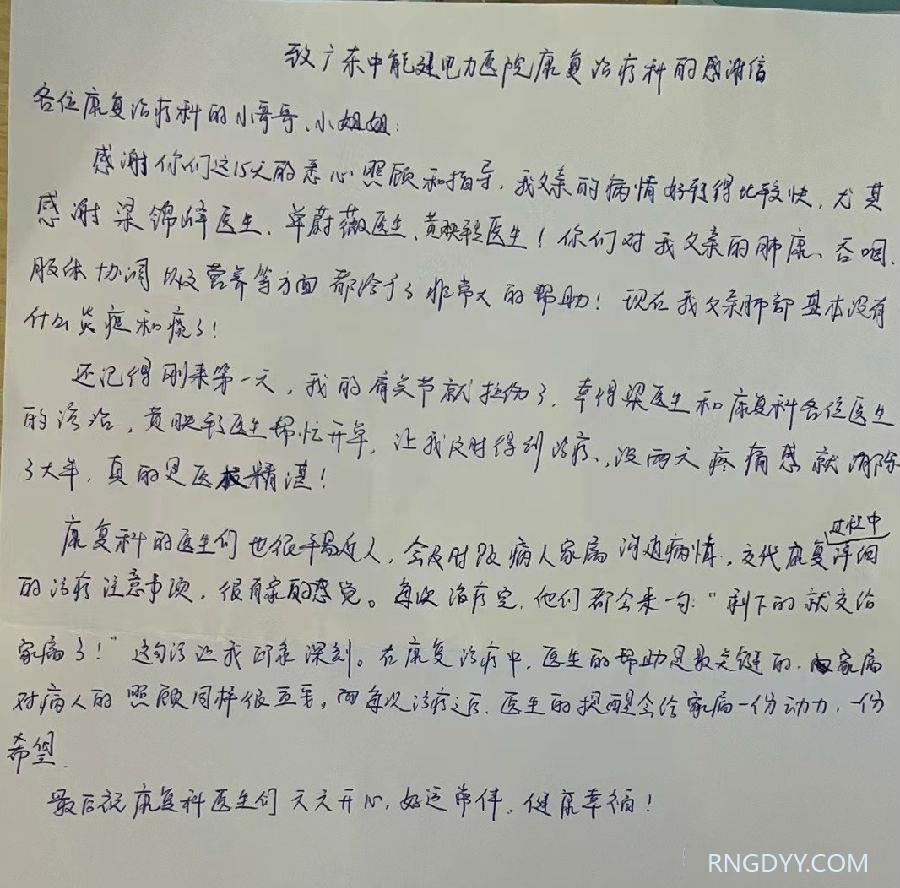 致广东中能建电力医院康复治疗科的感谢信
各位康复治疗科的小哥哥、小姐姐:
感谢你们这15天的悉心照顾和指导,我父亲的病情好转得比较快,尤其
感谢梁锦峰医生、单蔚薇医生、黄映彤医生!你们对我父亲的肺康、吞咽、
肢体协调以及营养等方面都给予了非常大的帮助!现在我父亲肺部基本没有
什么炎症和痰了!
还记得刚来第一天,我的肩关节就拉伤了,幸得梁医生和康复科各位医生
的诊治,黄映彤医生帮忙开单,让我及时得到治疗,没两天疼痛感就消除
了大半,真的是医技精湛!
康复科的医生们也很平易近人,会及时跟病人家属沟通病情,交代康复过程中
的治疗注意事项,很有家的感觉。每次治疗完,他们都会来一句:"剩下的就交给
家属了!"这句话让我印象深刻。在康复治疗中,医生的帮助是最关键的,家属
对病人的照顾同样很重要。而每次治疗之后,医生的提醒会给家属一份动力,一份
希望.
最后祝康复科医生们天天开心,好运常伴,健康幸福!
RNGDYY.COM